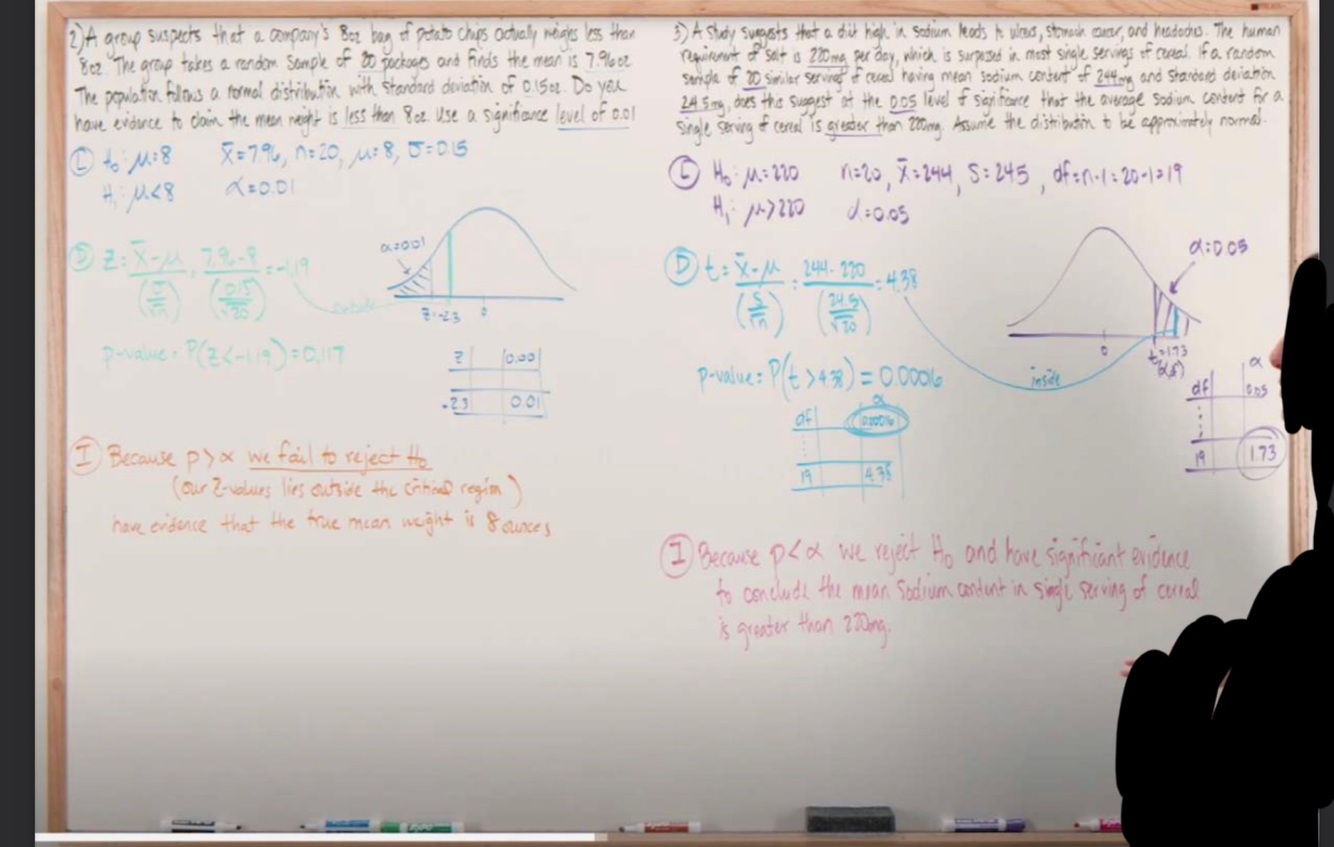 2) A group suspects that a company's 8oz bag of potato chips actually weighs less than
8oz. The group takes a random sample of 20 packages and finds the mean is 7.96oz
The population follows a normal distribution with standard deviation of 0.15oz. Do you
have evidence to claim the mean weight is less than 8oz. Use a significance level of 0.01
C H₀: μ=8 x̄=7.96, n=20, μ=8, σ=0.15
H₁: μ<8 α=0.01
D Z = x̄-μ / (σ/√n) = 7.96-8 / (0.15/√20) = -1.19
outside
α=0.01
Z=-2.3 0
p-value = P(Z<-1.19) = 0.117
Z 0.00
-2.3 0.01
I Because p>α we fail to reject H₀
(our Z-values lies outside the critical region)
have evidence that the true mean weight is 8 ounces
3) A study suggests that a diet high in sodium leads to ulcers, stomach cancer, and headaches. The human
requirement of salt is 220mg per day, which is surpassed in most single servings of cereal. If a random
sample of 20 similar servings of cereal having mean sodium content of 244mg and standard deviation
24.5mg, does this suggest at the 0.05 level of significance that the average sodium content for a
single serving of cereal is greater than 220mg. Assume the distribution to be approximately normal.
C H₀: μ=220 n=20, x̄=244, S=245, df=n-1=20-1=19
H₁: μ>220 α=0.05
D t = x̄-μ / (S/√n) = 244-220 / (24.5/√20) = 4.38
α=0.05
0
inside
p-value = P(t>4.38) = 0.00016
α
df 0.00016
19 4.38
α
df 0.05
19 1.73
I Because p<α we reject H₀ and have significant evidence
to conclude the mean Sodium content in single serving of cereal
is greater than 220mg.